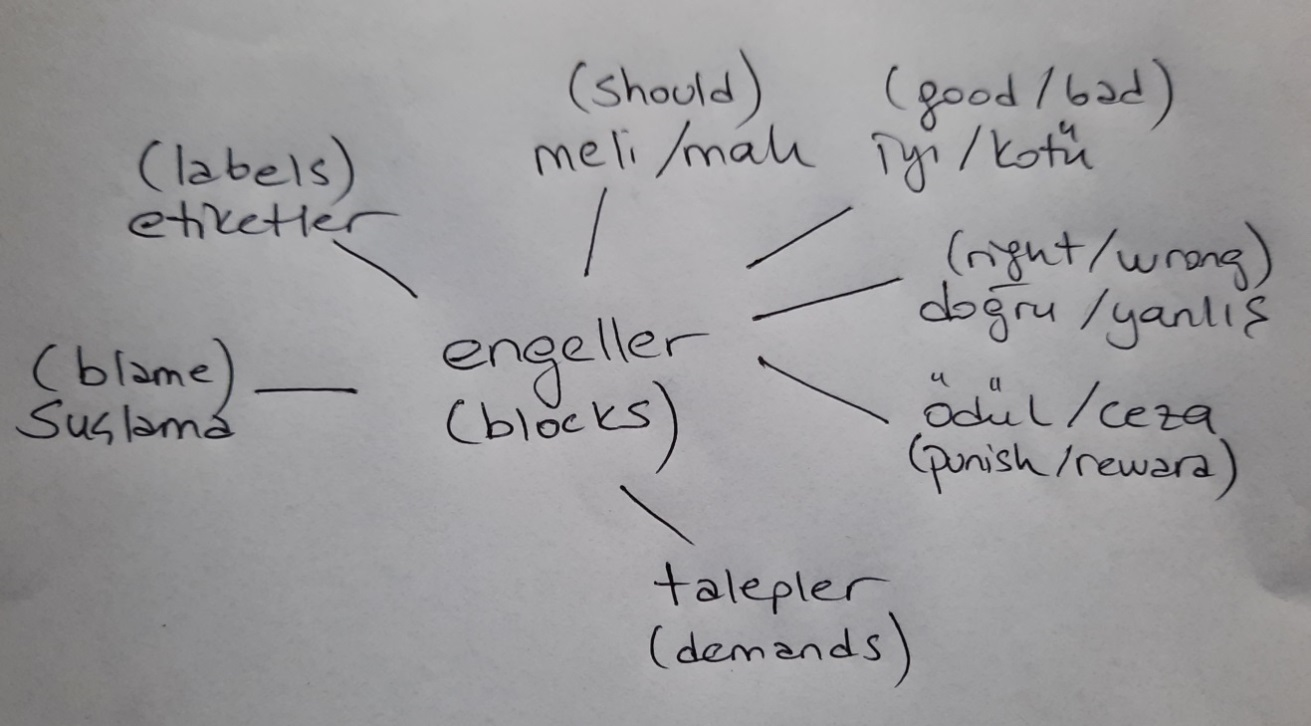 (should)
meli/malı
(good/bad)
iyi/kötü
(labels)
etiketler
(right/wrong)
doğru/yanlış
engeller
(blocks)
(blame)
Suçlama
ödül/ceza
(punish/reward)
talepler
(demands)